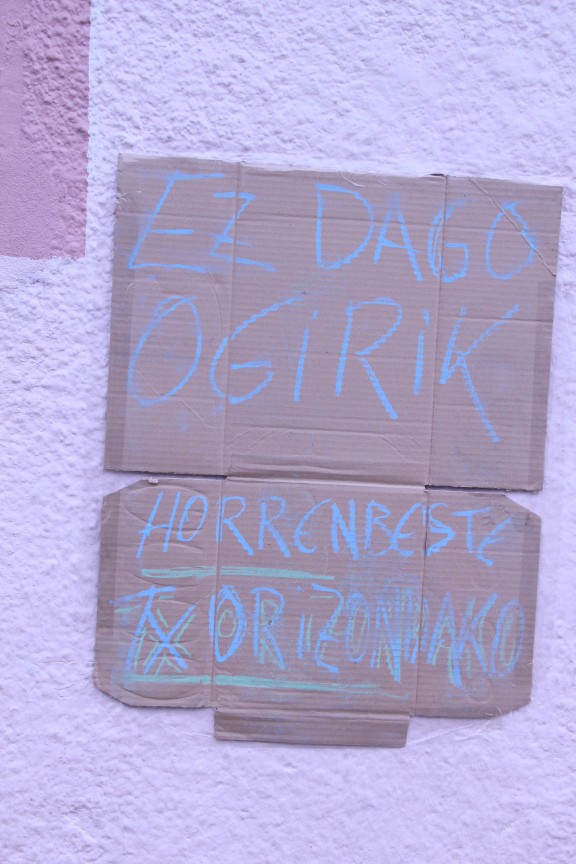 EZ DAGO
OGIRIK
HORRENBESTE
TXORIZONANKO